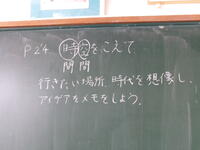 P24 時空をこえて、
間間
行きたい場所、時代を想像し、
アイデアをメモをしよう。